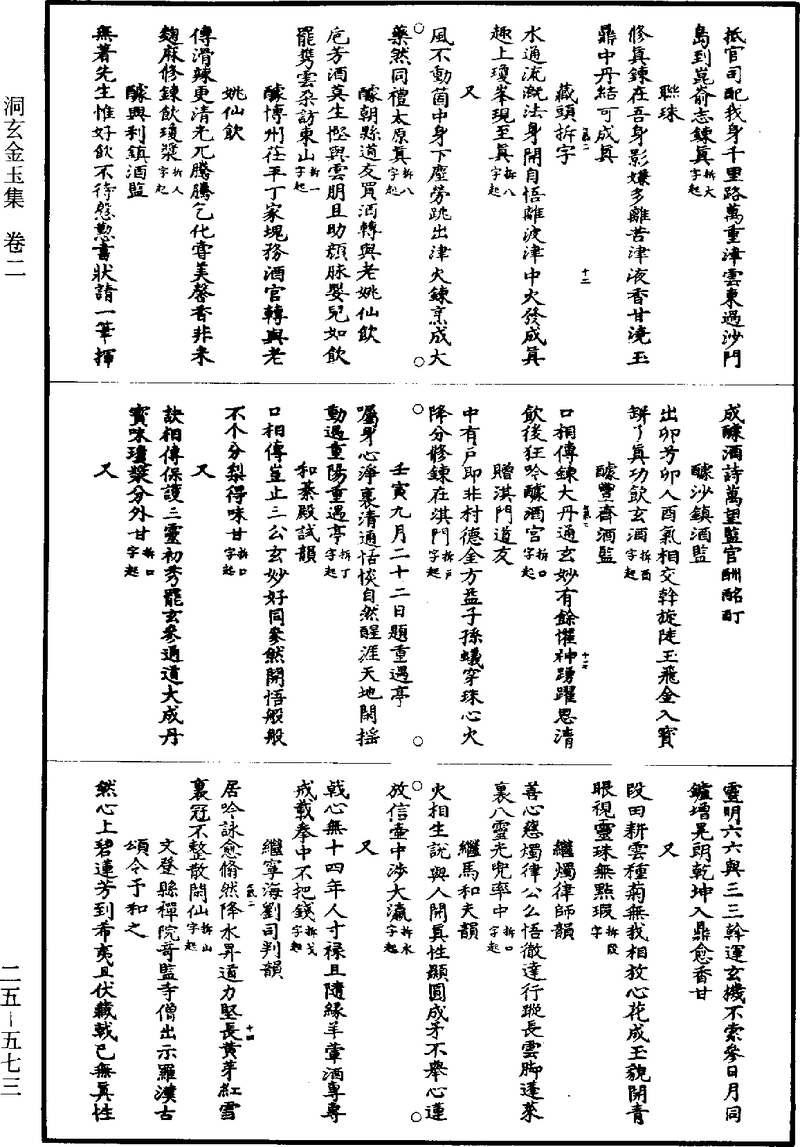 洞玄金玉集　卷二
二五－五七三
抵官司配我身千里路萬重津雲東過沙門
島到崑崙志鍊眞拆大字起
聯珠
修眞鍊在吾身影嫌多離苦津液香甘澆玉
鼎中丹結可成眞
藏頭拆字
水通流溉法身開自悟離波津中火發成眞
趣上瓊峯現至眞拆八字起
又
風不動箇中身下塵勞跳出津火鍊烹成大
藥然同禮太原眞拆八字起
酧朝縣道友買酒轉與老姚仙飲
巵芳酒莫生慳與雲朋且助顏脉嬰兒如飲
罷携雲朶訪東山拆一字起
酧博州茌平丁家堽務酒官轉與老
姚仙飲
傳滑辣更清光兀騰騰乞化甞美馨香非米
麴麻修鍊飲瓊漿拆人字起
酧興利鎮酒監
無著先生惟好飲不待慇懃書狀請一筆揮
成酧酒詩萬望監官酬酩酊
酧沙鎮酒監
出卯芳卯人酉氣相交幹旋陡玉飛金入寳
缾了眞功飲玄酒拆酉字起
酧豐齊酒監
口相傳鍊大丹通玄妙有餘懽神踴躍思清
飲後狂吟酧酒官拆口字起
贈淇門道友
中有戸即非村德全方益子孫蟻穿珠心火
降分修鍊在淇門拆戸字起
壬寅九月二十二日題重遇亭
囑身心淨裏清通恬惔自然醒涯天地閑搖
動遇重陽重遇亭拆丁字起
和蓁殿試韻
口相傳豈止三公玄妙好同參然開悟般般
不个分梨得味甘拆口字起
又
訣相傳保護三靈初秀罷玄參通道大成丹
寳味瓊漿分外甘拆口字起
又
靈明六六與三三幹運玄機不索參日月同
鑪增晃朗乾坤入鼎愈香甘
又
段田耕雲種菊無我相放心花成玉貌開青
眼視靈珠無點瑕拆段字
繼燭律師韻
善心慈燭律公么悟徹達行蹤長雲脚蓬萊
裏八靈光兜率中拆口字起
繼馬和夫韻
火相生說與人開眞性顯圓成矛不舉心蓮
放信壺中渉大瀛拆水字起
又
戟心無十四年人寸禄且隨緣羊葷酒專專
戒載拳中不把錢拆戈字起
繼寧海劉司判韻
居吟詠愈翛然降水昇道力堅長黄芽紅雪
裏冠不整散閑仙拆山字起
文登縣禪院奇監寺僧出示羅漢古
頌令予和之
然心上碧蓮芳到希夷且伏藏戟已無眞性